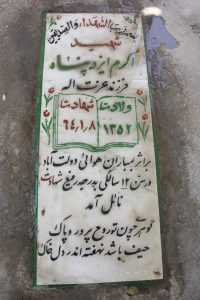 الشهداء والصدیقین
شهید
اکرم ایزدپناه
فرزند عزت اله
ولادت شهادت
۱۳۵۲ ۶۴٫۱٫۸
براثر بمباران هوائی دولت آباد
در سن ۱۲ سالگی بدرجه رفیع شهادت
نائل آمد
گوهر چون تو روح پرور و پاک
حیف باشد نهفته اندر دل خاک